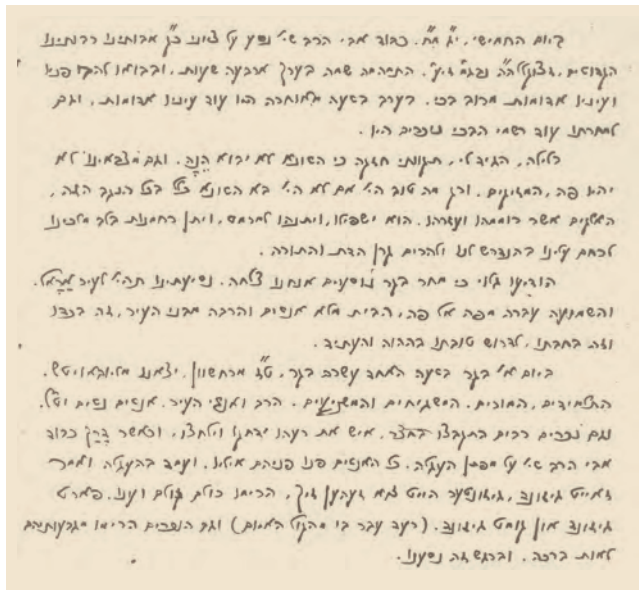 ביום החמישי, י"ג מ"ח, כבוד אבי הרב שי' נסע על ציוני כ"ק אבותינו רבותינו
הקדושים, זצוקללה"ה נבגמ"מ זי"ע. התמהמה שמה בערך ארבעה שעות, ובבואו פניו
ועיניו אדומות מרוב בכי. בערב בשעה מאוחרה היו עוד עיניו אדומות, וגם
למחרתו עוד רשמי הבכי ניכרים היו.
בלילה, הגיד לי, תקותי חזקה כי השונא לא יבוא הֵנָה. וגם מצבאינו לא
יהיו פה, המזיקים. ורק מה טוב הי' אם לא הי' בא השונא כלל בכל הנגב הזה,
האלקים אשר רוממהו ועזרהו. הוא ישפילו, ויתנהו למרמס, ויתן רחמנות בלב מלכינו
לרחם עלינו בהנדרש לנו ולהרים קרן הדת והתורה.
הודיעו גלוי כי מחר בקר נוסעים אנחנו צלחה. נסיעתינו תהי' לעיר
והשמועה עברה מפה אל פה, הבית מלא אנשים והרבה מבני העיר, זה בכדו
וזה בחבתו, לדרוש טובתו בההוה והעתיד.
ביום א' בקר בשעה האחד עשרה בקר, ט"ז מרחשוון, יצאנו מליובאוויטש.
התלמידים, המורים, המשגיחים והמשפיעים. הרב ואנשי העיר. אנשים נשים וטף.
וגם נכרים רבים התקבצו בחצר, איש את רעהו ידחקו וילחצו, וכאשר דָרַך כבוד
אבי הרב שי' על מפתן העגלה. כל האנשים פנו פניהם אליו. ועמד בהעגלה ואמר
זאייט געזונד, געזונטער הייט זאל זעהען זיך, הרימו כולם קולם וענו. פארט
געזונד און קומט געזונד. (רעד עבר בי מהקול האיום) וגם הנכרים הרימו מגבעותיהם
לאות ברכה. וברגש זה נסענו.